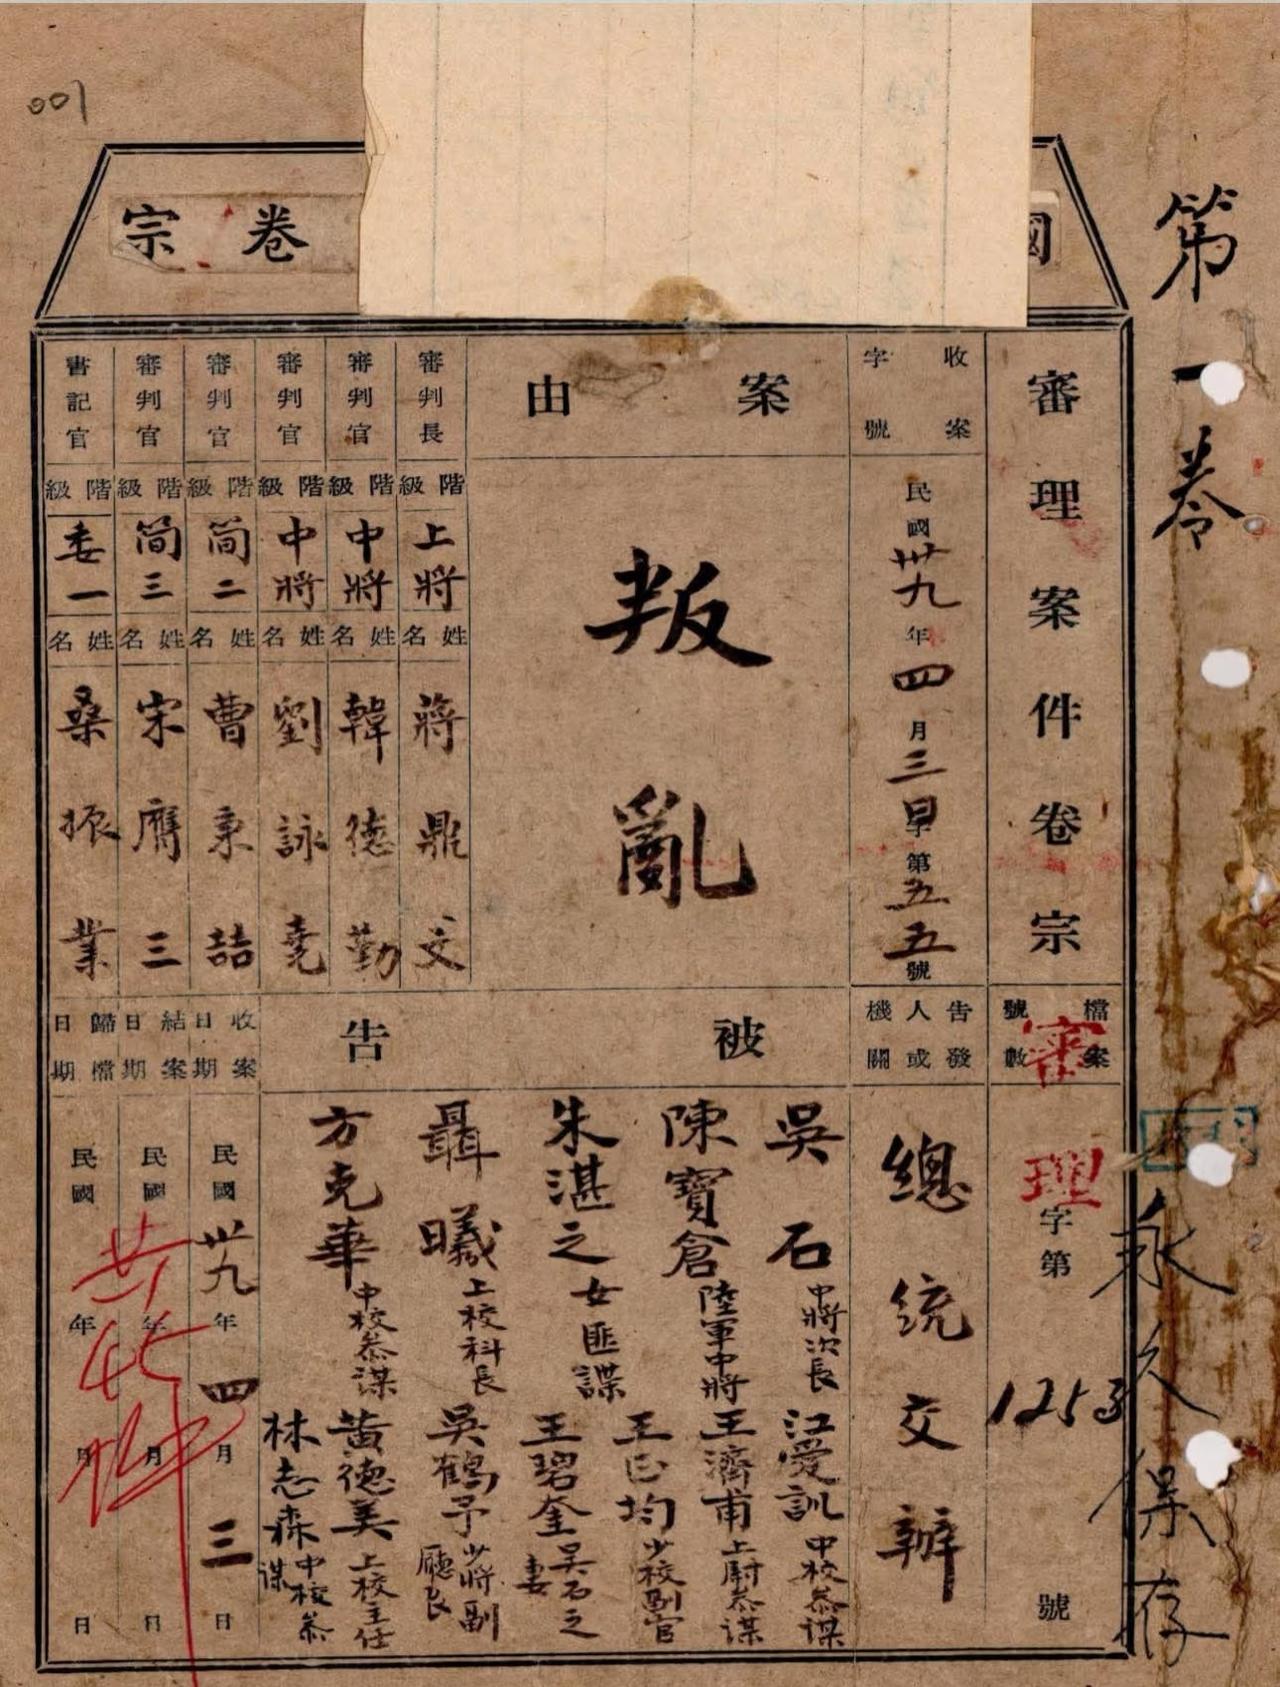 001
卷宗
第一卷
永久保存
審理案件卷宗
檔案號數
審理字第1253號
收案字號
民國卅九年四月三日字第五五號
告發人或機關
總統交辦
案由
叛亂
審判長
階級
上將
姓名
蔣鼎文
審判官
階級
中將
姓名
韓德勤
審判官
階級
中將
姓名
劉詠堯
審判官
階級
简二
姓名
曹秉喆
審判官
階級
简三
姓名
宋膺三
書記官
階級
委一
姓名
桑振業
被告
吳石 中將次長
陳寶倉 陸軍中將
朱湛之 女匪諜
聶曦 上校科長
方克華 中校参謀
江愛訓 中校参謀
王濟甫 上尉参謀
王正均 少校副官
王碧奎 吴石之妻
吳鶴予 少將副廳長
黃德美 上校主任
林志森 中校参謀
收案日期
民國卅九年四月三日
結案日期
民國 年 月 日
歸檔日期
民國 年 月 日
共 件